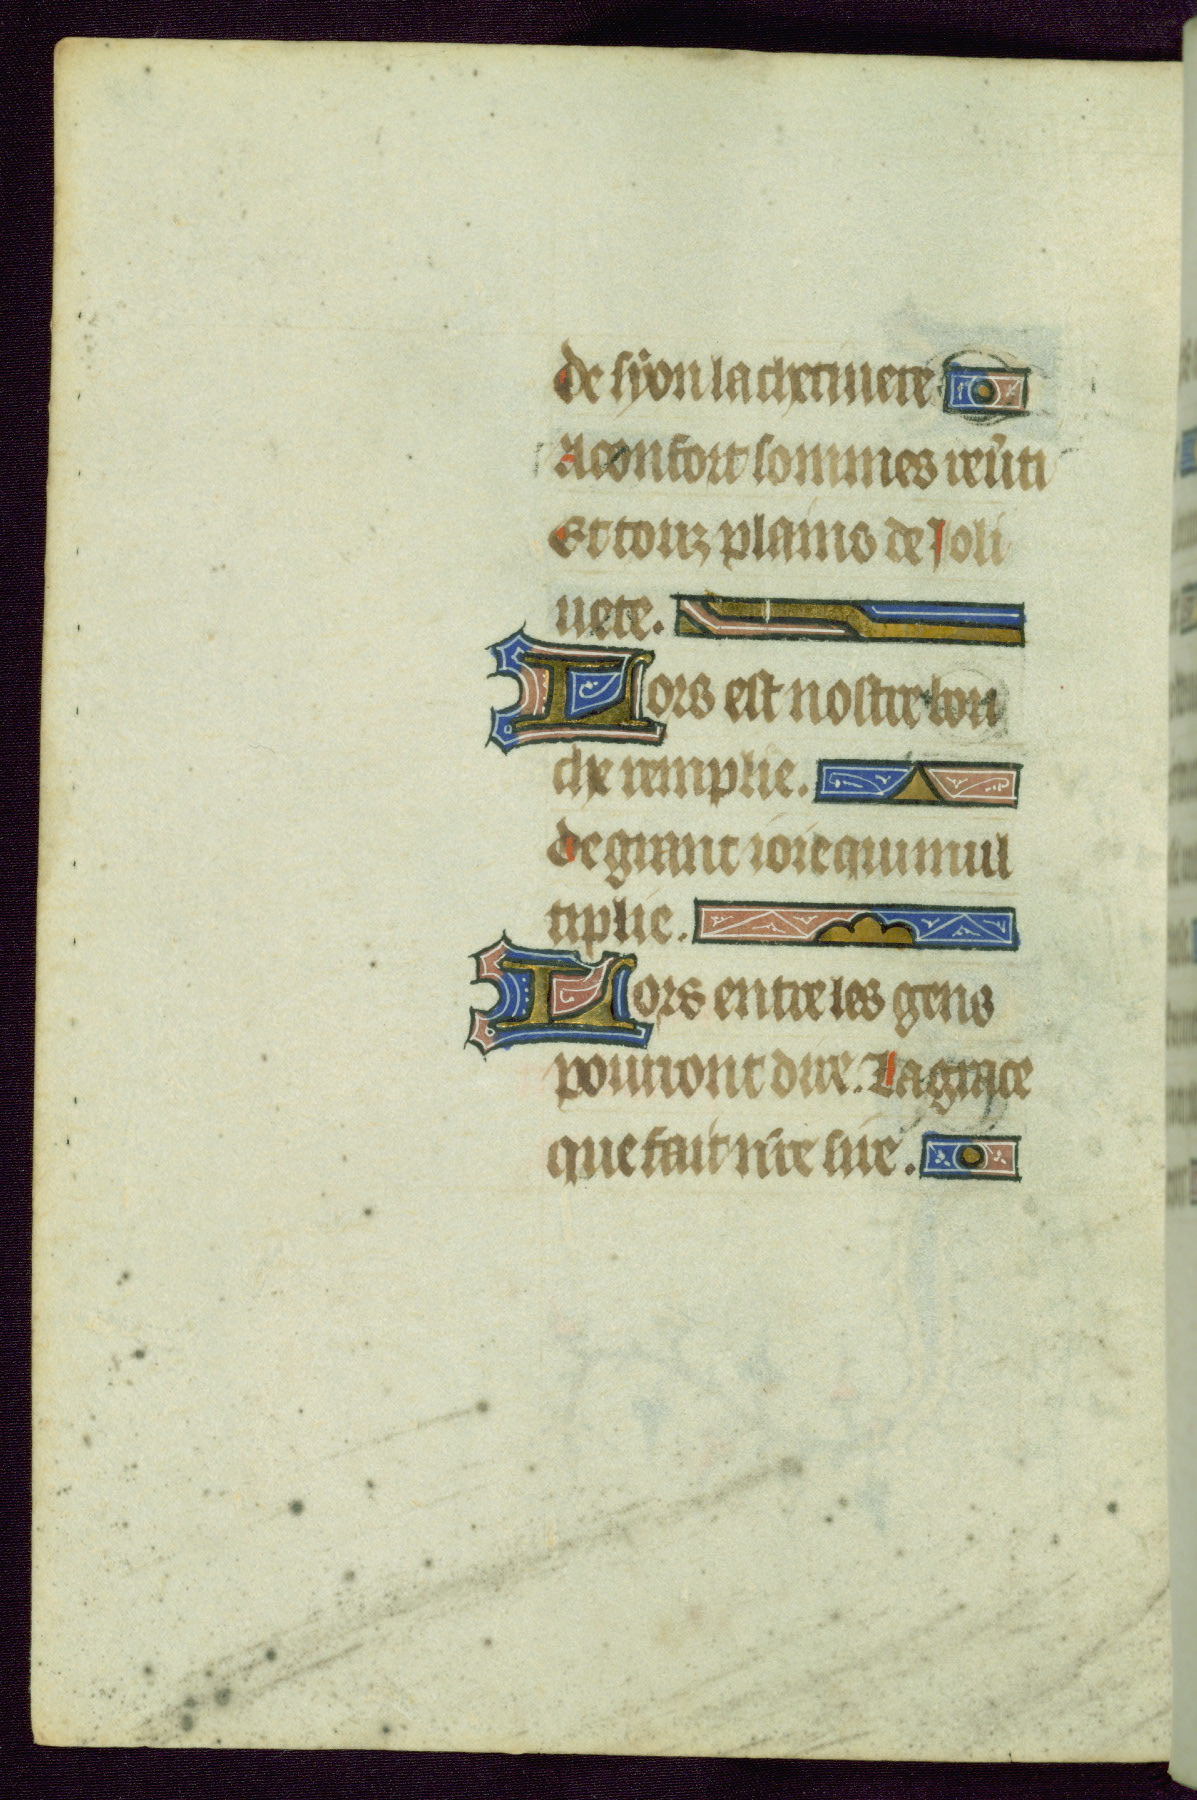 de syon la chetiuete
A confort sommes reuti
Et touz plains de Ioli
uete.
Lors est nostre bou
che remplie.
de grant ioie qui mul
tiplie.
Lors entre les gens
pourront dire. La grace
que fait nre sire.